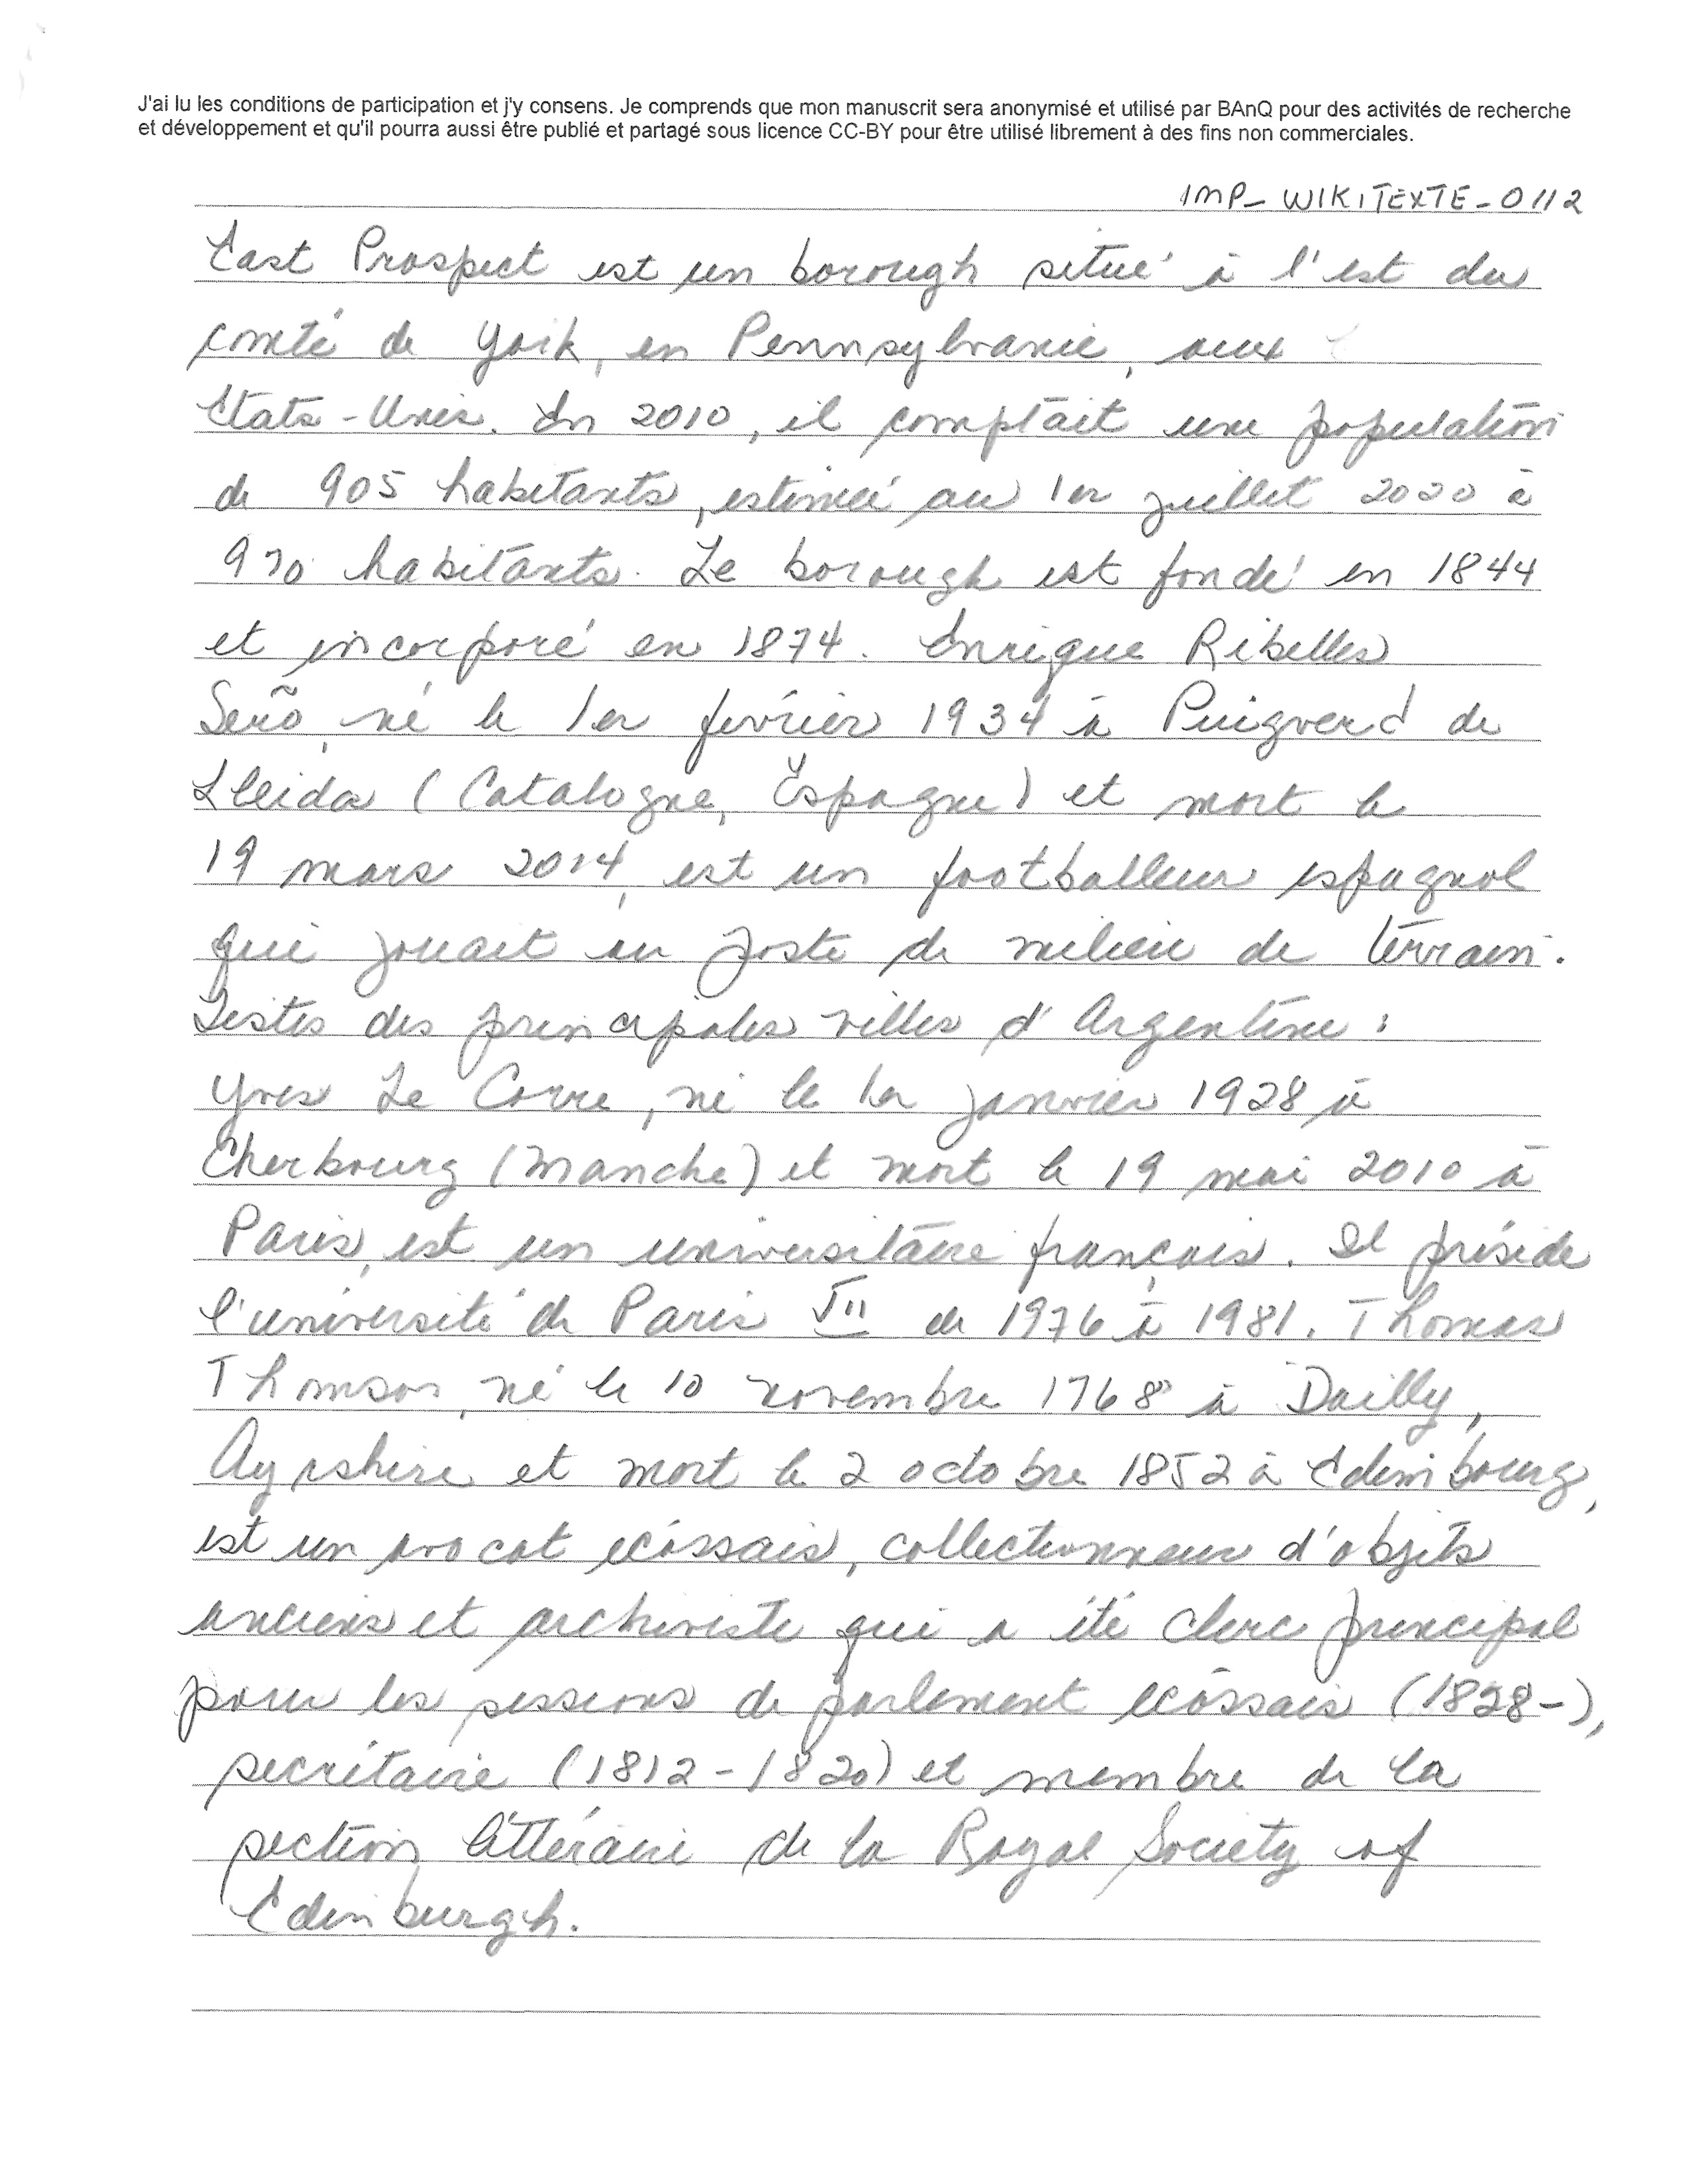 J'ai lu les conditions de participation et j'y consens. Je comprends que mon manuscrit sera anonymisé et utilisé par BAnQ pour des activités de recherche
et développement et qu'il pourra aussi être publié et partagé sous licence CC-BY pour être utilisé librement à des fins non commerciales.
IMP_WIKITEXTE_0112
East Prospect est un borough situé à l'est du
comté de York, en Pennsylvanie, aux
Etats-Unis. En 2010, il comptait une population
de 905 habitants, estimée au 1er juillet 2020 à
970 habitants. Le borough est fondé en 1844
et incorporé en 1874. Enrique Ribelles
Señō, né le 1er février 1934 à Puigverd de
Lleida (Catalogne, Espagne) et mort le
19 mars 2014, est un footballeur espagnol
qui jouait au poste de milieu de terrain.
Listes des principales villes d'Argentine :
Yves Le Corre, né le 1er janvier 1928 à
Cherbourg (Manche) et mort le 19 mai 2010 à
Paris, est un universitaire français. Il préside
l'université de Paris VII de 1976 à 1981. Thomas
Thomson, né le 10 novembre 1768 à Dailly,
Ayrshire et mort le 2 octobre 1852 à Edimbourg,
est un avocat écossais, collectionneur d'objets
anciens et archiviste qui a été clerc principal
pour les sessions de parlement écossais (1828-),
secrétaire (1812-1820) et membre de la
section littéraire de la Royal Society of
Edinburgh.